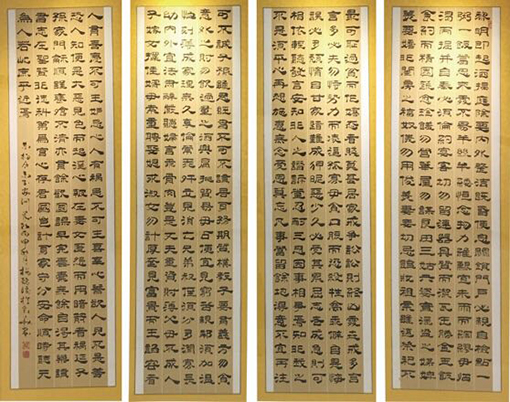 黎明即起洒掃庭除要內外整潔既昏便息關鎖門戶必親自檢點一
粥一飯當思來處不易半絲半縷恆念物力維艱宜未雨而綢繆毋臨
渴而掘井自奉必須儉約宴客切勿流連器具質而潔瓦缶勝金玉飲
食約而精園蔬愈珍饈勿營華屋勿謀良田三姑六婆實淫盜之媒婢
美妾嬌非閨房之福童僕勿用俊美妻妾切忌艷妝祖宗雖遠祭祀不
最可恥遇貧窮而作驕態者賤莫甚居家戒爭訟訟則終凶處世戒多
言言多必失勿恃勢力而凌逼孤寡毋貪口腹而恣殺生禽乖僻自是悔
誤必多頹惰自甘家道難成狎暱惡少久必受其累屈志老成急則可
相依輕聽發言安知非人之譖訴當忍耐三思因事相爭焉知非我之
不是須平心再想施惠無念受恩莫忘凡事當留餘地得意不宜再往
可不誠子孫雖愚經書不可不讀居身務期質樸教子要有義方勿貪
意外之財勿飲過量之酒與肩挑貿易毋佔便宜見窮苦親鄰須加溫
恤刻薄成家理無久享倫常乖舛立見消亡兄弟叔侄須分多潤寡長
幼內外宜法肅辭嚴聽婦言乖骨肉豈是丈夫重資財薄父母不成人
子嫁女擇佳婿毋索重聘娶媳求淑女勿計厚奩見富貴而生諂容者
人有喜慶不可生妒忌心人有禍患不可生喜幸心善欲人見不是真善
惡恐人知便是大惡見色而起淫心報在妻女匿怨而用暗箭禍延子
孫家門和順雖饔飧不濟亦有餘歡國課早完即囊橐無餘自得至樂讀
書志在聖賢非徒科第為官心存君國豈計身家守分安命順時聽天
為人若此庶乎近焉